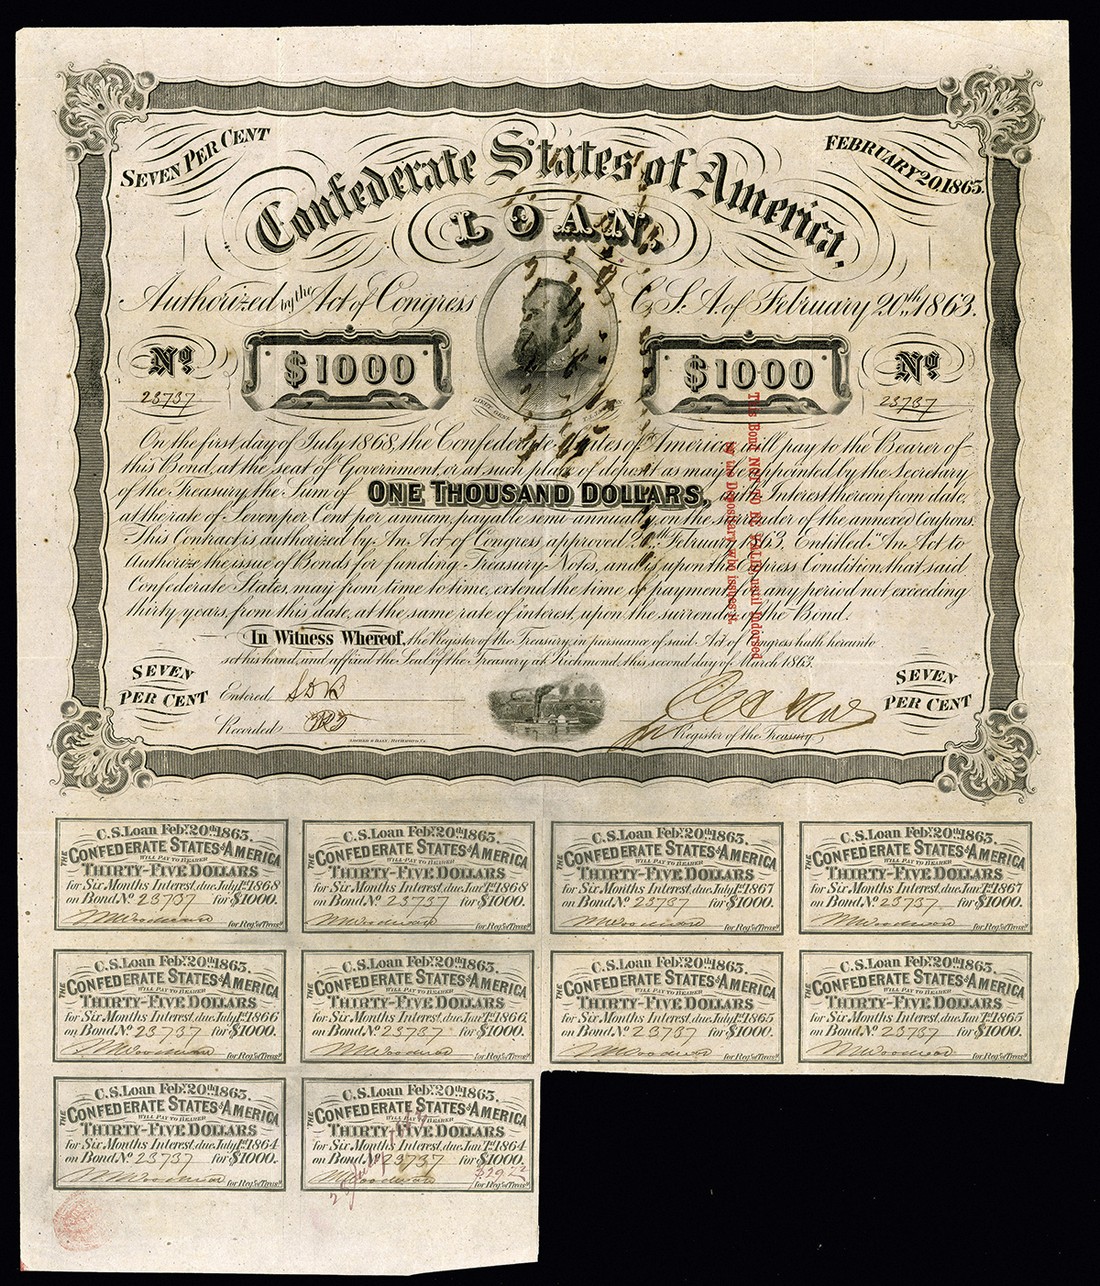 SEVEN PER CENT
FEBRUARY 20, 1863.
Confederate States of America.
LOAN,
Authorized by the Act of Congress C. S. A. of February 20th 1863.
No.
23737
$1000
$1000
No.
23737
On the first day of July 1868, the Confederate States of America will pay to the Bearer of
this Bond, at the seat of Government, or at such place of deposit as may be appointed by the Secretary
of the Treasury, the Sum of ONE THOUSAND DOLLARS, with Interest thereon from date,
at the rate of Seven per Cent per annum, payable semi-annually, on the surrender of the annexed Coupons.
This Contract is authorized by An Act of Congress approved 20th February 1863. Entitled "An Act to
Authorize the issue of Bonds for funding Treasury Notes, and is upon the express Condition that said
Confederate States, may from time to time, extend the time of payment for any period not exceeding
thirty years, from this date, at the same rate of interest, upon the surrender of the Bond.
In Witness Whereof, the Register of the Treasury, in pursuance of said Act of Congress hath hereunto
set his hand, and affixed the Seal of the Treasury at Richmond, this second day of March 1863.
This Bond NOT TO BE VALID until Indorsed
by the Depositary who issues it.
SEVEN
PER CENT
Entered
Recorded
SEVEN
PER CENT
Register of the Treasury
C.S. Loan Feby. 20th 1863.
THE CONFEDERATE STATES of AMERICA
WILL PAY TO BEARER
THIRTY-FIVE DOLLARS
for Six Months Interest, due July 1st 1868
on Bond No. 23737 for $1000.
for Reg. of Treasy.
C.S. Loan Feby. 20th 1863.
THE CONFEDERATE STATES of AMERICA
WILL PAY TO BEARER
THIRTY-FIVE DOLLARS
for Six Months Interest, due Jany. 1st 1868
on Bond No. 23737 for $1000.
for Reg. of Treasy.
C.S. Loan Feby. 20th 1863.
THE CONFEDERATE STATES of AMERICA
WILL PAY TO BEARER
THIRTY-FIVE DOLLARS
for Six Months Interest, due July 1st 1867
on Bond No. 23737 for $1000.
for Reg. of Treasy.
C.S. Loan Feby. 20th 1863.
THE CONFEDERATE STATES of AMERICA
WILL PAY TO BEARER
THIRTY-FIVE DOLLARS
for Six Months Interest, due Jany. 1st 1867
on Bond No. 23737 for $1000.
for Reg. of Treasy.
C.S. Loan Feby. 20th 1863.
THE CONFEDERATE STATES of AMERICA
WILL PAY TO BEARER
THIRTY-FIVE DOLLARS
for Six Months Interest, due July 1st 1866
on Bond No. 23737 for $1000.
for Reg. of Treasy.
C.S. Loan Feby. 20th 1863.
THE CONFEDERATE STATES of AMERICA
WILL PAY TO BEARER
THIRTY-FIVE DOLLARS
for Six Months Interest, due Jany. 1st 1866
on Bond No. 23737 for $1000.
for Reg. of Treasy.
C.S. Loan Feby. 20th 1863.
THE CONFEDERATE STATES of AMERICA
WILL PAY TO BEARER
THIRTY-FIVE DOLLARS
for Six Months Interest, due July 1st 1865
on Bond No. 23737 for $1000.
for Reg. of Treasy.
C.S. Loan Feby. 20th 1863.
THE CONFEDERATE STATES of AMERICA
WILL PAY TO BEARER
THIRTY-FIVE DOLLARS
for Six Months Interest, due Jany. 1st 1865
on Bond No. 23737 for $1000.
for Reg. of Treasy.
C.S. Loan Feby. 20th 1863.
THE CONFEDERATE STATES of AMERICA
WILL PAY TO BEARER
THIRTY-FIVE DOLLARS
for Six Months Interest, due July 1st 1864
on Bond No. 23737 for $1000.
for Reg. of Treasy.
C.S. Loan Feby. 20th 1863.
THE CONFEDERATE STATES of AMERICA
WILL PAY TO BEARER
THIRTY-FIVE DOLLARS
for Six Months Interest, due Jany. 1st 1864
on Bond No. 23737 for $1000.
for Reg. of Treasy.